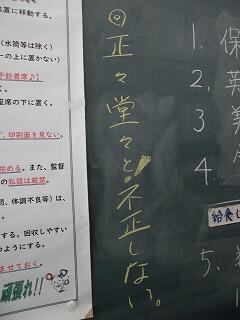 置に移動する。
(水筒等は除く)
の上に置かない)
予鈴着席♪】
座席の下に置く。
、印刷面を見ない。
始める。また、監督
の私語は厳禁。
問、体調不良等)は、
する。回収しやすい
のようにする。
させておく。
頑張れ!!
◎正々堂々と不正しない。
1. 保
2. 英
3.
4.
給食
5.